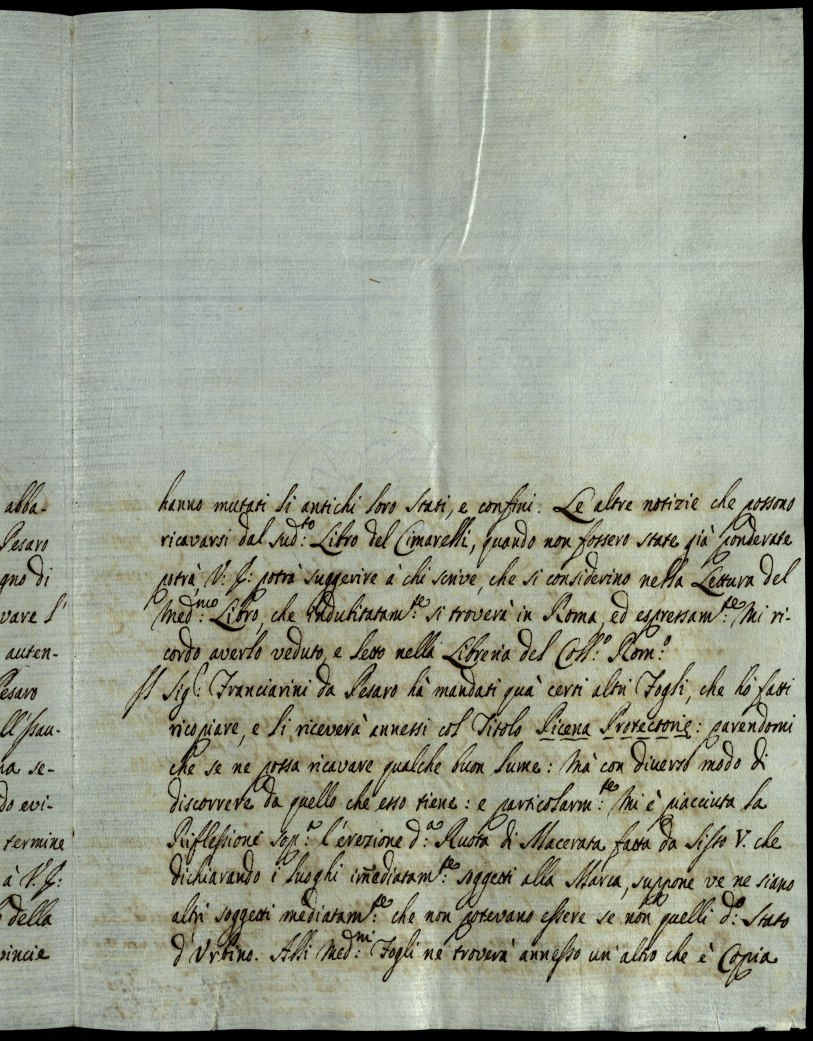 abba-
Pesaro
gno di
vare l'
auten-
Pesaro
ll'Isau-
na se-
do evi-
termine
à V. S:
della
vincie
hanno mutati li antichi loro stati, e confini. Le altre notizie che possono
ricavarsi dal sud:to Libro del Cimarelli, quando non fossero state già ponderate
potrà V: S: potrà suggerire à chi scrive, che si considerino nella Lettura del
Med:mo Libro, che indubitatam:te si troverà in Roma, ed espressam:te mi ri-
cordo averlo veduto, e letto nella Libreria del Coll:o Rom:o
Il Sig: Franciarini da Pesaro hà mandati quà certi altri Fogli, che hò fatti
ricopiare, e li riceverà annessi col Titolo Picena Protectorie: parendomi
che se ne possa ricavare qualche buon lume: Mà con diverso modo di
discorrere da quello che esso tiene: e particolarm:te mi è piaciuta la
Riflessione sop:a l'erezione d:a Ruota di Macerata fatta da Sisto V. che
dichiarando i luoghi imediatam:te soggetti alla Marca, suppone ve ne siano
altri soggetti mediatam:te che non potevano essere se non quelli d:o Stato
d'Urbino. Alli Med:mi Fogli ne troverà annesso un'altro che è Copia